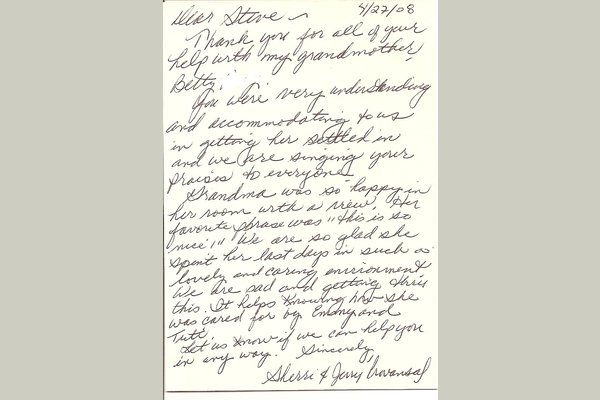 4/27/08
Dear Steve ~
Thank you for all of your
help with my grandmother,
Betty.
You were very understanding
and accommodating to us
in getting her settled in
and we are singing your
praises to everyone.
Grandma was so happy in
her room with a view. Her
favorite phrase was "this is so
nice!" We are so glad she
spent her last days in such a
lovely and caring environment.
We are sad and getting thru
this. It helps knowing how she
was cared for by Emmy and
Tuti.
Let us know if we can help you
in any way. Sincerely,
Sherri & Jerry